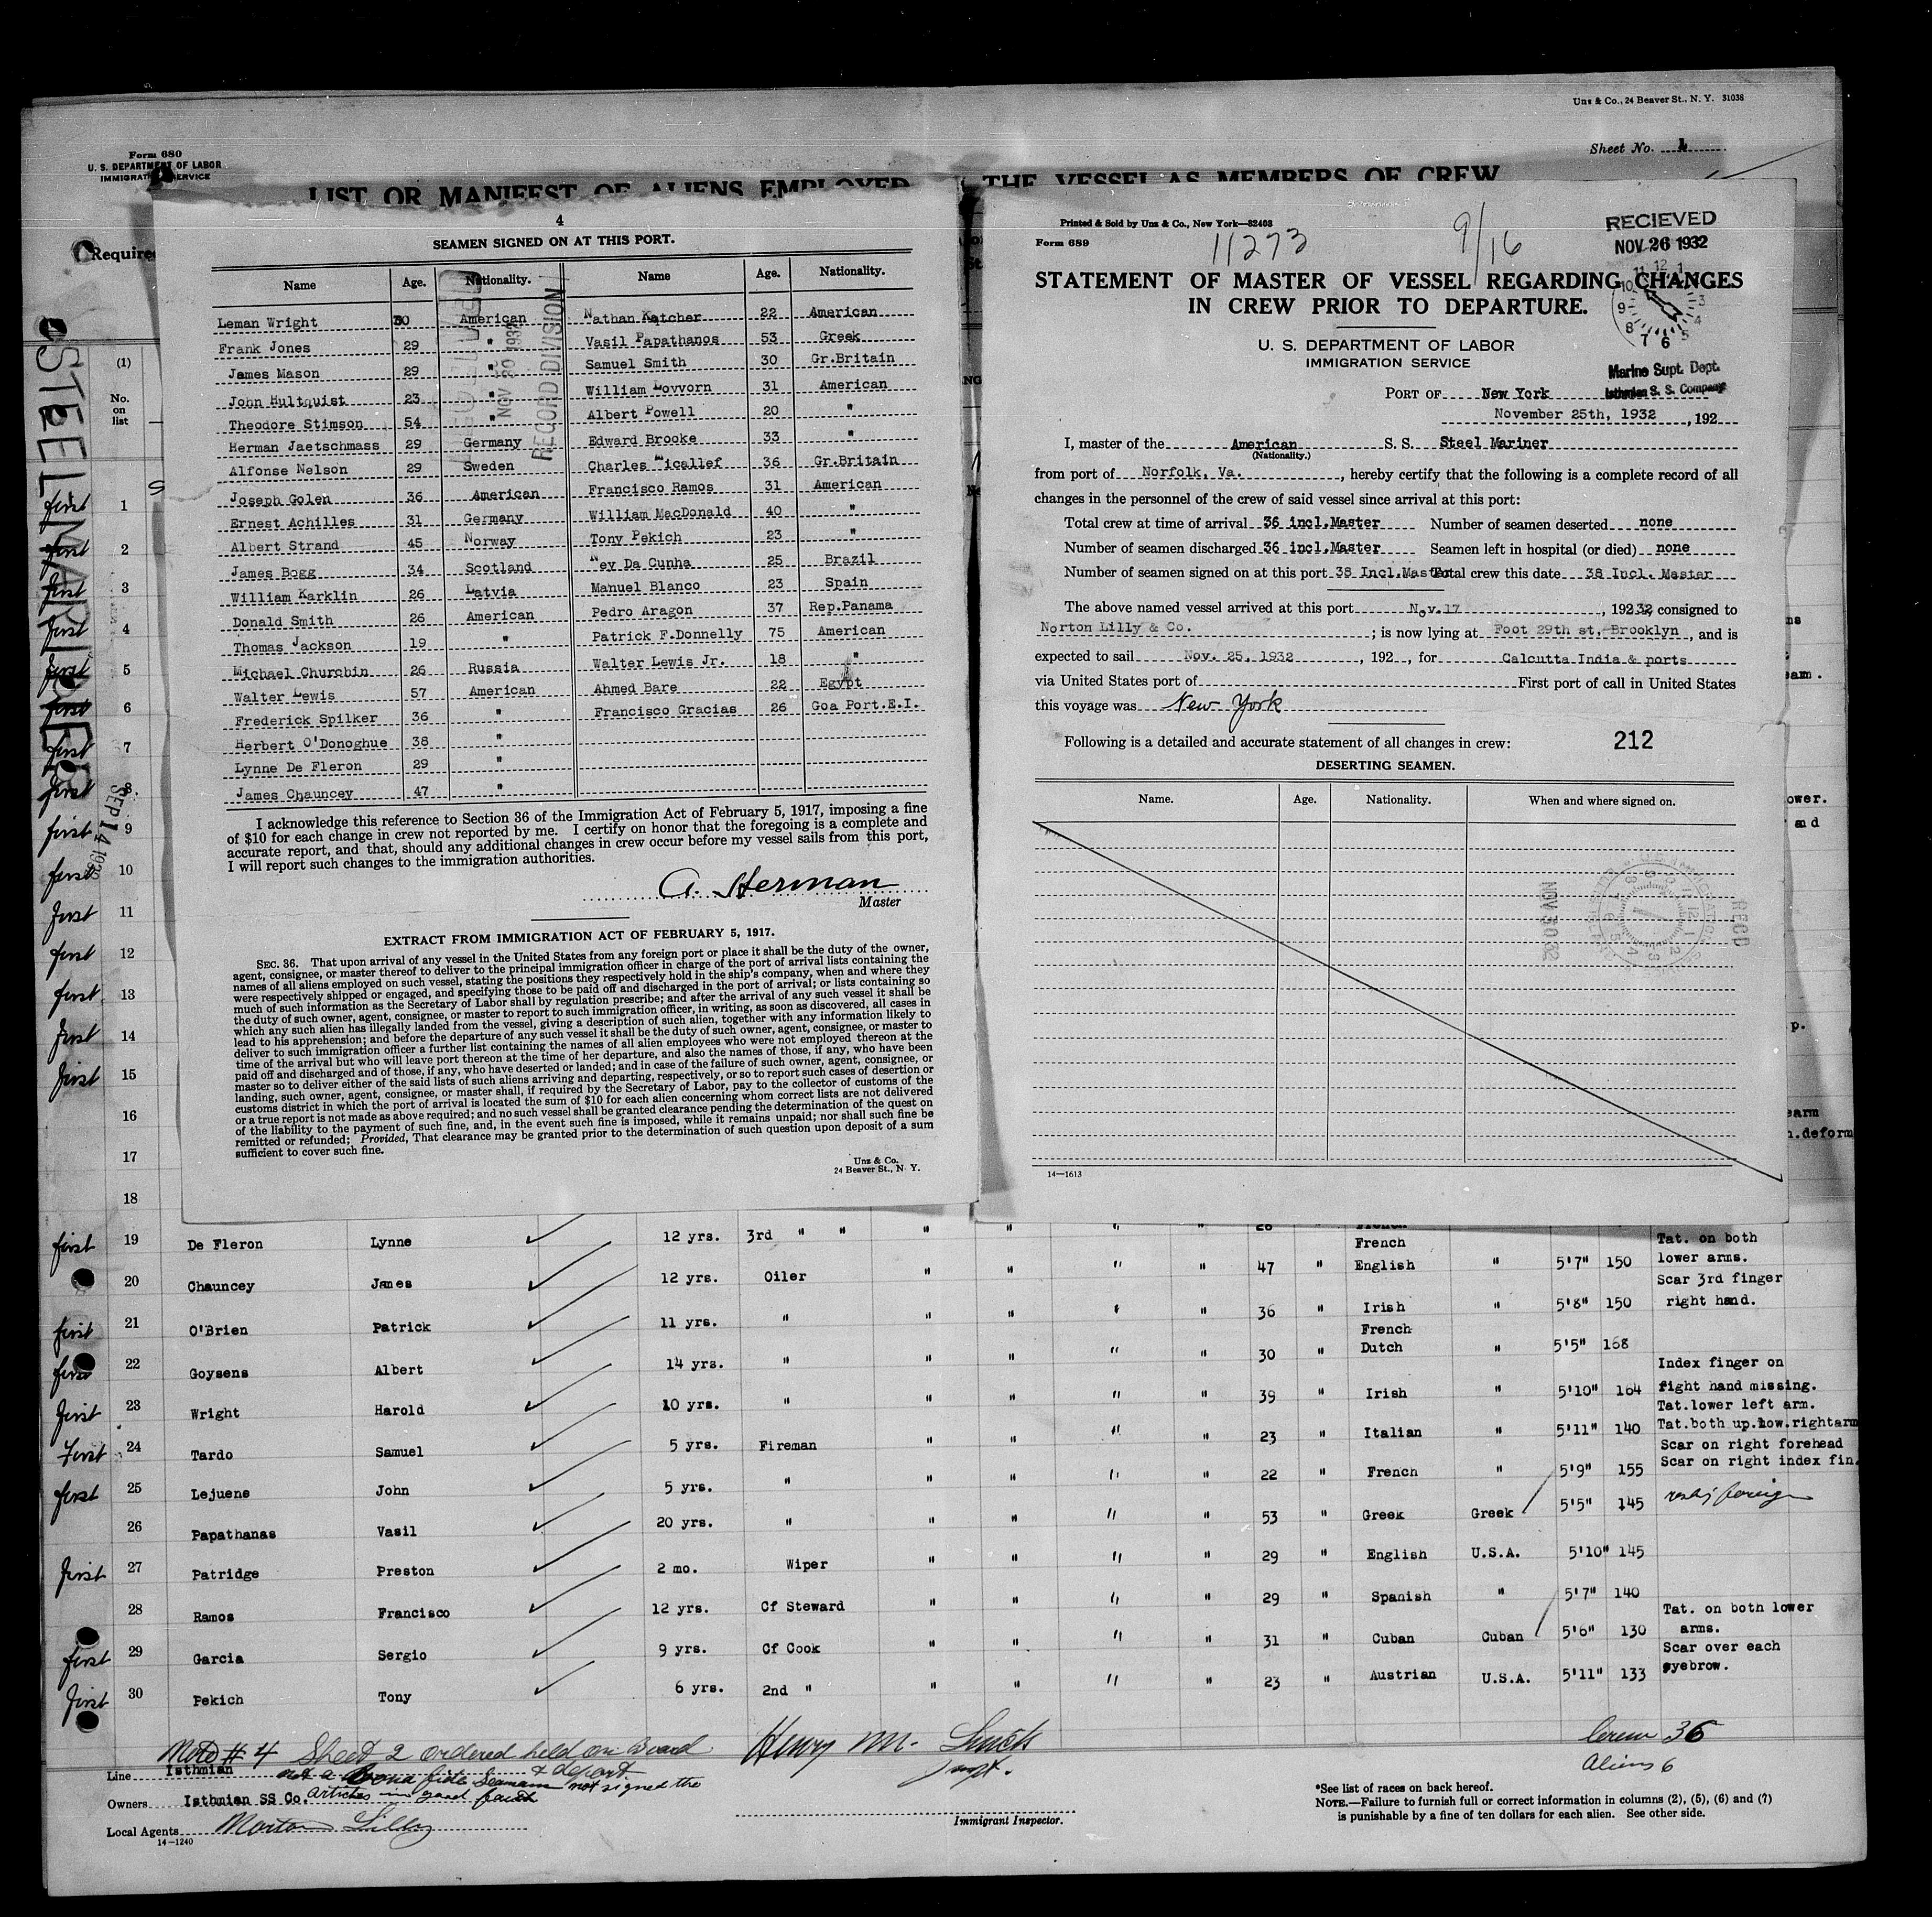 Uns & Co., 24 Beaver St., N. Y. 31038
Form 680
U. S. DEPARTMENT OF LABOR
IMMIGRATION SERVICE
Sheet No.
LIST OR MANIFEST OF ALIENS EMPLOYED THE VESSEL AS MEMBERS OF CREW
Required
(1)
No.
on
list
STEEL MARINER
SEP 14 1932
4
SEAMEN SIGNED ON AT THIS PORT.
Name Age. Nationality. Name Age. Nationality.
Leman Wright 30 American Nathan Katcher 22 American
Frank Jones 29 " Vasil Papathanos 53 Greek
James Mason 29 " Samuel Smith 30 Gr.Britain
John Hultquist 23 " William Lovvorn 31 American
Theodore Stimson 54 " Albert Powell 20 "
Herman Jaetschmass 29 Germany Edward Brooke 33 "
Alfonse Nelson 29 Sweden Charles Micallef 36 Gr.Britain
Joseph Golen 36 American Francisco Ramos 31 American
Ernest Achilles 31 Germany William MacDonald 40 "
Albert Strand 45 Norway Tony Pekich 23 "
James Bogg 34 Scotland Ney Da Cunha 25 Brazil
William Karklin 26 Latvia Manuel Blanco 23 Spain
Donald Smith 26 American Pedro Aragon 37 Rep.Panama
Thomas Jackson 19 " Patrick F.Donnelly 75 American
Michael Churchin 26 Russia Walter Lewis Jr. 18 "
Walter Lewis 57 American Ahmed Bare 22 Egypt
Frederick Spilker 36 " Francisco Gracias 26 Goa Port.E.I.
Herbert O'Donoghue 38 "
Lynne De Fleron 29 "
James Chauncey 47 "
NOV 30 1932
RECORD DIVISION
I acknowledge this reference to Section 36 of the Immigration Act of February 5, 1917, imposing a fine
of $10 for each change in crew not reported by me. I certify on honor that the foregoing is a complete and
accurate report, and that, should any additional changes in crew occur before my vessel sails from this port,
I will report such changes to the immigration authorities.
A. Herman
Master
EXTRACT FROM IMMIGRATION ACT OF FEBRUARY 5, 1917.
SEC. 36. That upon arrival of any vessel in the United States from any foreign port or place it shall be the duty of the owner,
agent, consignee, or master thereof to deliver to the principal immigration officer in charge of the port of arrival lists containing the
names of all aliens employed on such vessel, stating the positions they respectively hold in the ship's company, when and where they
were respectively shipped or engaged, and specifying those to be paid off and discharged in the port of arrival; or lists containing so
much of such information as the Secretary of Labor shall by regulation prescribe; and after the arrival of any such vessel it shall be
the duty of such owner, agent, consignee, or master to report to such immigration officer, in writing, as soon as discovered, all cases in
which any such alien has illegally landed from the vessel, giving a description of such alien, together with any information likely to
lead to his apprehension; and before the departure of any such vessel it shall be the duty of such owner, agent, consignee, or master to
deliver to such immigration officer a further list containing the names of all alien employees who were not employed thereon at the
time of the arrival but who will leave port thereon at the time of her departure, and also the names of those, if any, who have been
paid off and discharged and of those, if any, who have deserted or landed; and in case of the failure of such owner, agent, consignee, or
master so to deliver either of the said lists of such aliens arriving and departing, respectively, or so to report such cases of desertion or
landing, such owner, agent, consignee, or master shall, if required by the Secretary of Labor, pay to the collector of customs of the
customs district in which the port of arrival is located the sum of $10 for each alien concerning whom correct lists are not delivered
or a true report is not made as above required; and no such vessel shall be granted clearance pending the determination of the question
of the liability to the payment of such fine, and, in the event such fine is imposed, while it remains unpaid; nor shall such fine be
remitted or refunded; Provided, That clearance may be granted prior to the determination of such question upon deposit of a sum
sufficient to cover such fine.
Unz & Co.
24 Beaver St., N. Y.
Printed & Sold by Unz & Co., New York—32403
Form 689
11273
9/16
RECIEVED
NOV 26 1932
Marine Supt. Dept.
Isthmian S. S. Company
STATEMENT OF MASTER OF VESSEL REGARDING CHANGES
IN CREW PRIOR TO DEPARTURE.
U. S. DEPARTMENT OF LABOR
IMMIGRATION SERVICE
PORT OF New York
November 25th, 1932, 192
I, master of the American S. S. Steel Mariner
(Nationality.)
from port of Norfolk, Va., hereby certify that the following is a complete record of all
changes in the personnel of the crew of said vessel since arrival at this port:
Total crew at time of arrival 36 incl.Master Number of seamen deserted none
Number of seamen discharged 36 incl.Master Seamen left in hospital (or died) none
Number of seamen signed on at this port 38 Incl.Master Total crew this date 38 Incl. Master
The above named vessel arrived at this port Nov.17, 19232 consigned to
Norton Lilly & Co.; is now lying at Foot 29th st. Brooklyn, and is
expected to sail Nov. 25, 1932, 192, for Calcutta India & ports
via United States port of First port of call in United States
this voyage was New York
Following is a detailed and accurate statement of all changes in crew: 212
DESERTING SEAMEN.
Name. Age. Nationality. When and where signed on.
RECD
NOV 30 32
14—1613
first 1
first 2
first 3
first 4
first 5
first 6
first 7
first 8
first 9
first 10
first 11
first 12
first 13
first 14
first 15
16
17
18
ower.
and
p.
earm
n.deform
first 19 De Fleron Lynne 12 yrs. 3rd " " " " " " 28 " French Tat. on both
lower arms.
20 Chauncey James 12 yrs. Oiler " " " " 47 " English " 5'7" 150 Scar 3rd finger
right hand.
first 21 O'Brien Patrick 11 yrs. " " " " " 36 " Irish " 5'8" 150
first 22 Goysens Albert 14 yrs. " " " " " 30 " French Dutch " 5'5" 168
first 23 Wright Harold 10 yrs. " " " " " 39 " Irish " 5'10" 164 Index finger on
right hand missing.
Tat.lower left arm.
First 24 Tardo Samuel 5 yrs. Fireman " " " " 23 " Italian " 5'11" 140 Tat.both up.low.rightarm
Scar on right forehead
first 25 Lejuene John 5 yrs. " " " " " 22 " French " 5'9" 155 Scar on right index fin.
26 Papathanas Vasil 20 yrs. " " " " " 53 " Greek Greek 5'5" 145
first 27 Patridge Preston 2 mo. Wiper " " " " 29 " English U.S.A. 5'10" 145
28 Ramos Francisco 12 yrs. Cf Steward " " " " 29 " Spanish " 5'7" 140
first 29 Garcia Sergio 9 yrs. Cf Cook " " " " 31 " Cuban Cuban 5'6" 130 Tat. on both lower
arms.
first 30 Pekich Tony 6 yrs. 2nd " " " " " 23 " Austrian U.S.A. 5'11" 133 Scar over each
eyebrow.
Note # 4 Sheet 2 ordered held on board
& deport.
not a bona fide Seaman not signed the
articles in good faith
Henry M.
Crew 36
Aliens 6
Line Isthmian
Owners Isthmian SS Co.
Local Agents Norton Lilly
14—1240
Immigrant Inspector.
*See list of races on back hereof.
NOTE.—Failure to furnish full or correct information in columns (2), (5), (6) and (7)
is punishable by a fine of ten dollars for each alien. See other side.